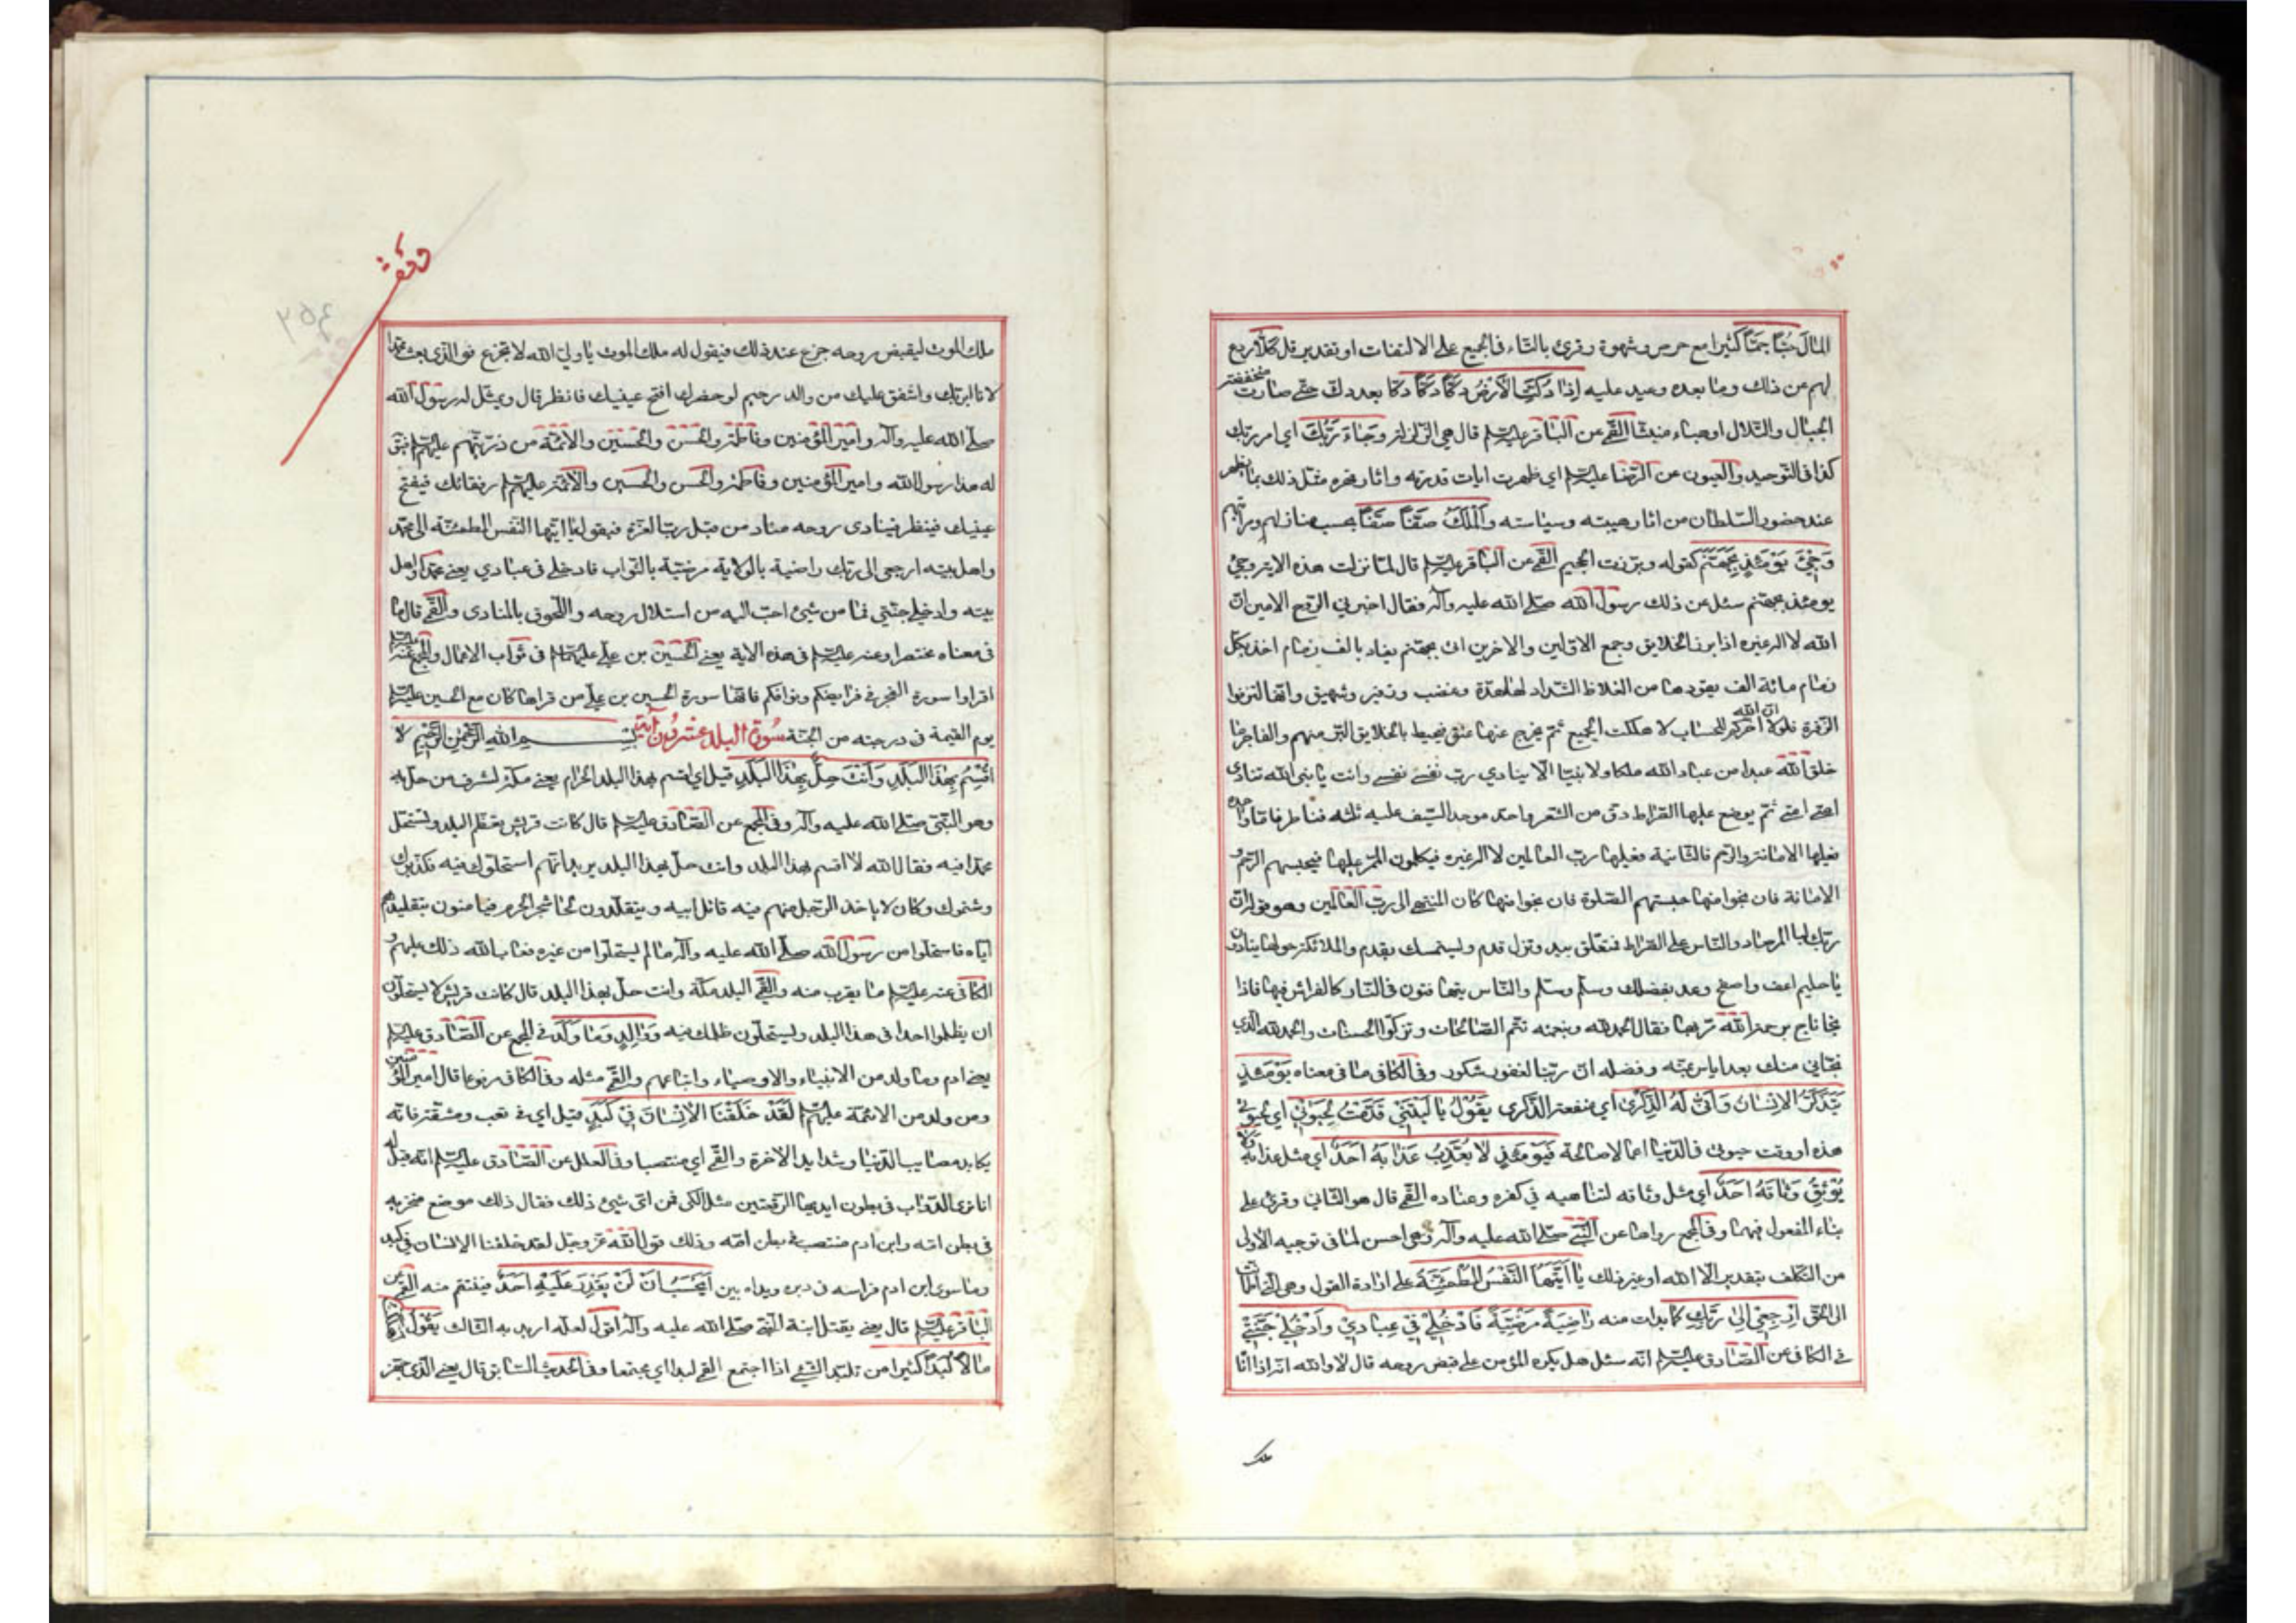 المال حبا جما كثيرا مع حرص وشهوة وقرئ بالتاء في الجميع على الالتفات او تقدير قل كلا ردع
لهم عن ذلك وما بعده وعيد عليه اذا دكت الارض دكا دكا دكا بعد دك حتى صارت منخفضة
الجبال والتلال او هباء منبثا القمي عن الباقر عليه السلم قال هي الزلزلة وجاء ربك اي امر ربك
كذا في التوحيد والعيون عن الرضا عليه السلم اي ظهرت ايات قدرته واثار قهره مثل ذلك بما يظهر
عند حضور السلطان من اثار هيبته وسياسته والملك صفا صفا بحسب منازلهم ومراتبهم
وجئ يومئذ بجهنم كقوله وبرزت الجحيم القمي عن الباقر عليه السلم قال لما نزلت هذه الاية وجئ
يومئذ بجهنم سئل عن ذلك رسول الله صلى الله عليه وآله فقال اخبرني الروح الامين ان
الله لا اله غيره اذا برز الخلايق وجمع الاولين والاخرين اتى بجهنم يقاد بالف زمام اخذ بكل
زمام مائة الف يقودها من الغلاظ الشداد لها هدة وغضب وزفير وشهيق وانها لتزفر
الزفرة فلولا ان الله اخرهم للحساب لاهلكت الجميع ثم يخرج عنها عنق فيحيط بالخلايق البر منهم والفاجر ما
خلق الله عبدا من عباد الله ملكا ولا نبيا الا ينادي رب نفسي نفسي وانت يا نبي الله تنادي
امتي امتي ثم يوضع عليها الصراط ادق من الشعر واحد من حد السيف عليه ثلثه قناطر فاما واحدة
فعليها الامانة والرحم والثانية فعليها رب العالمين لا اله غيره فيكلفون الممر عليها فيحبسهم الرحم و
الامانة فان نجوا منها حبستهم الصلوة فان نجوا منها كان المنتهى الى رب العالمين وهو قوله ان
ربك لبا المرصاد والناس على الصراط فمتعلق بيد وتزل قدم ويستمسك بقدم والملائكة حولها ينادون
يا حليم اعف واصفح وعد بفضلك وسلم وسلم والناس يتهافتون في النار كالفراش فيها فاذا
نجا ناج برحمة الله مر بها فقال الحمد لله وبنعمته تتم الصالحات وتزكوا الحسنات والحمد لله الذي
نجاني منك بعد اياس بمنه وفضله ان ربنا لغفور شكور وفي الكافي ما في معناه يومئذ
يتذكر الانسان وانى له الذكرى اي منفعة الذكرى يقول يا ليتني قدمت لحيوتي اي لحيوتي
هذه او وقت حيوتي في الدنيا اعمالا صالحة فيومئذ لا يعذب عذابه احد اي مثل عذابه ولا
يوثق وثاقه احد اي مثل وثاقه لتناهيه في كفره وعناده القمي قال هو الثاني وقرئ على
بناء المفعول فيهما وفي المجمع رواها عن النبي صلى الله عليه وآله وهي احسن لما في توجيه الاولى
من التكلف بتقدير الا الله او غير ذلك يا ايتها النفس المطمئنة على ارادة القول وهي التي اطمانت
الى الحق ارجعي الى ربك كما بدات منه راضية مرضية فادخلي في عبادي وادخلي جنتي
في الكافي عن الصادق عليه السلم انه سئل هل يكره المؤمن على قبض روحه قال لا والله انه اذا اتا
ملك
وقف
ملك الموت ليقبض روحه جزع عند ذلك فيقول له ملك الموت يا ولي الله لا تجزع فو الذي بعث محمدا
لانا ابر بك واشفق عليك من والد رحيم لو حضرك افتح عينيك فانظر قال ويمثل له رسول الله
صلى الله عليه وآله وامير المؤمنين وفاطمة والحسن والحسين والائمة من ذريتهم عليهم السلم فيق
له هذا رسول الله وامير المؤمنين وفاطمة والحسن والحسين والائمة عليهم السلم رفقائك فيفتح
عينيك فينظر فينادى روحه مناد من قبل رب العزة فيقول يا ايتها النفس المطمئنة الى محمد
واهل بيته ارجعي الى ربك راضية بالولاية مرضية بالثواب فادخلي في عبادي يعني محمدا واهل
بيته وادخلي جنتي فما من شئ احب اليه من استلال روحه واللحوق بالمنادى والقمي قال ما
في معناه مختصرا وعنه عليه السلم في هذه الاية يعني الحسين بن علي عليهما السلم في ثواب الاعمال والمجمع عنه عليه السلم
اقراوا سورة الفجر في فرايضكم ونوافلكم فانها سورة الحسين بن علي من قراها كان مع الحسين عليه السلم
يوم القيمة في درجته من الجنة سورة البلد عشرون اية بسم الله الرحمن الرحيم لا
اقسم بهذا البلد وانت حل بهذا البلد قيل اي اقسم بهذا البلد الحرام يعني مكة لشرف من حل به
وهو النبي صلى الله عليه وآله وفي المجمع عن الصادق عليه السلم قال كانت قريش تعظم البلد وتستحل
محمدا فيه فقال الله لا اقسم بهذا البلد وانت حل بهذا البلد يريد انهم استحلوك فيه فكذبوك
وشتموك وكان لا ياخذ الرجل منهم فيه قاتل ابيه ويتقلدون لحا شجر الحرم فيامنون بتقليدهم
اياه فاستحلوا من رسول الله صلى الله عليه وآله ما لم يستحلوا من غيره فعاب الله ذلك عليهم و
الكافي عنه عليه السلم ما يقرب منه والقمي البلد مكة وانت حل بهذا البلد قال كانت قريش لا يستحلون
ان يظلموا احدا في هذا البلد ويستحلون ظلمك فيه ووالد وما ولد في المجمع عن الصادق عليه السلم
يعني ادم وما ولد من الانبياء والاوصياء واتباعهم والقمي مثله وفي الكافي مرفوعا قال امير المؤمنين
ومن ولد من الائمة عليهم السلم لقد خلقنا الانسان في كبد قيل اي في تعب ومشقة فانه
يكابد مصايب الدنيا وشدايد الاخرة والقمي اي منتصبا وفي العلل عن الصادق عليه السلم انه قيل له
انا نرى الدواب في بطون ايديها الرقعتين مثل الكى فمن اى شئ ذلك فقال ذلك موضع منخريه
في بطن امه وابن ادم منتصب في بطن امه وذلك قول الله عز وجل لقد خلقنا الانسان في كبد
وما سوى ابن ادم فراسه في دبره ويداه بين ايحسب ان لن يقدر عليه احد فينتقم منه القمي عن
الباقر عليه السلم قال يعني يقتل ابنة النبي صلى الله عليه وآله اقول لعله اريد به الثالث يقول اهلكت
مالا لبدا كثيرا من تلبد الشئ اذا اجتمع القمي لبدا اي مجتمعا وفي الحديث السابق قال يعني الذي جهز